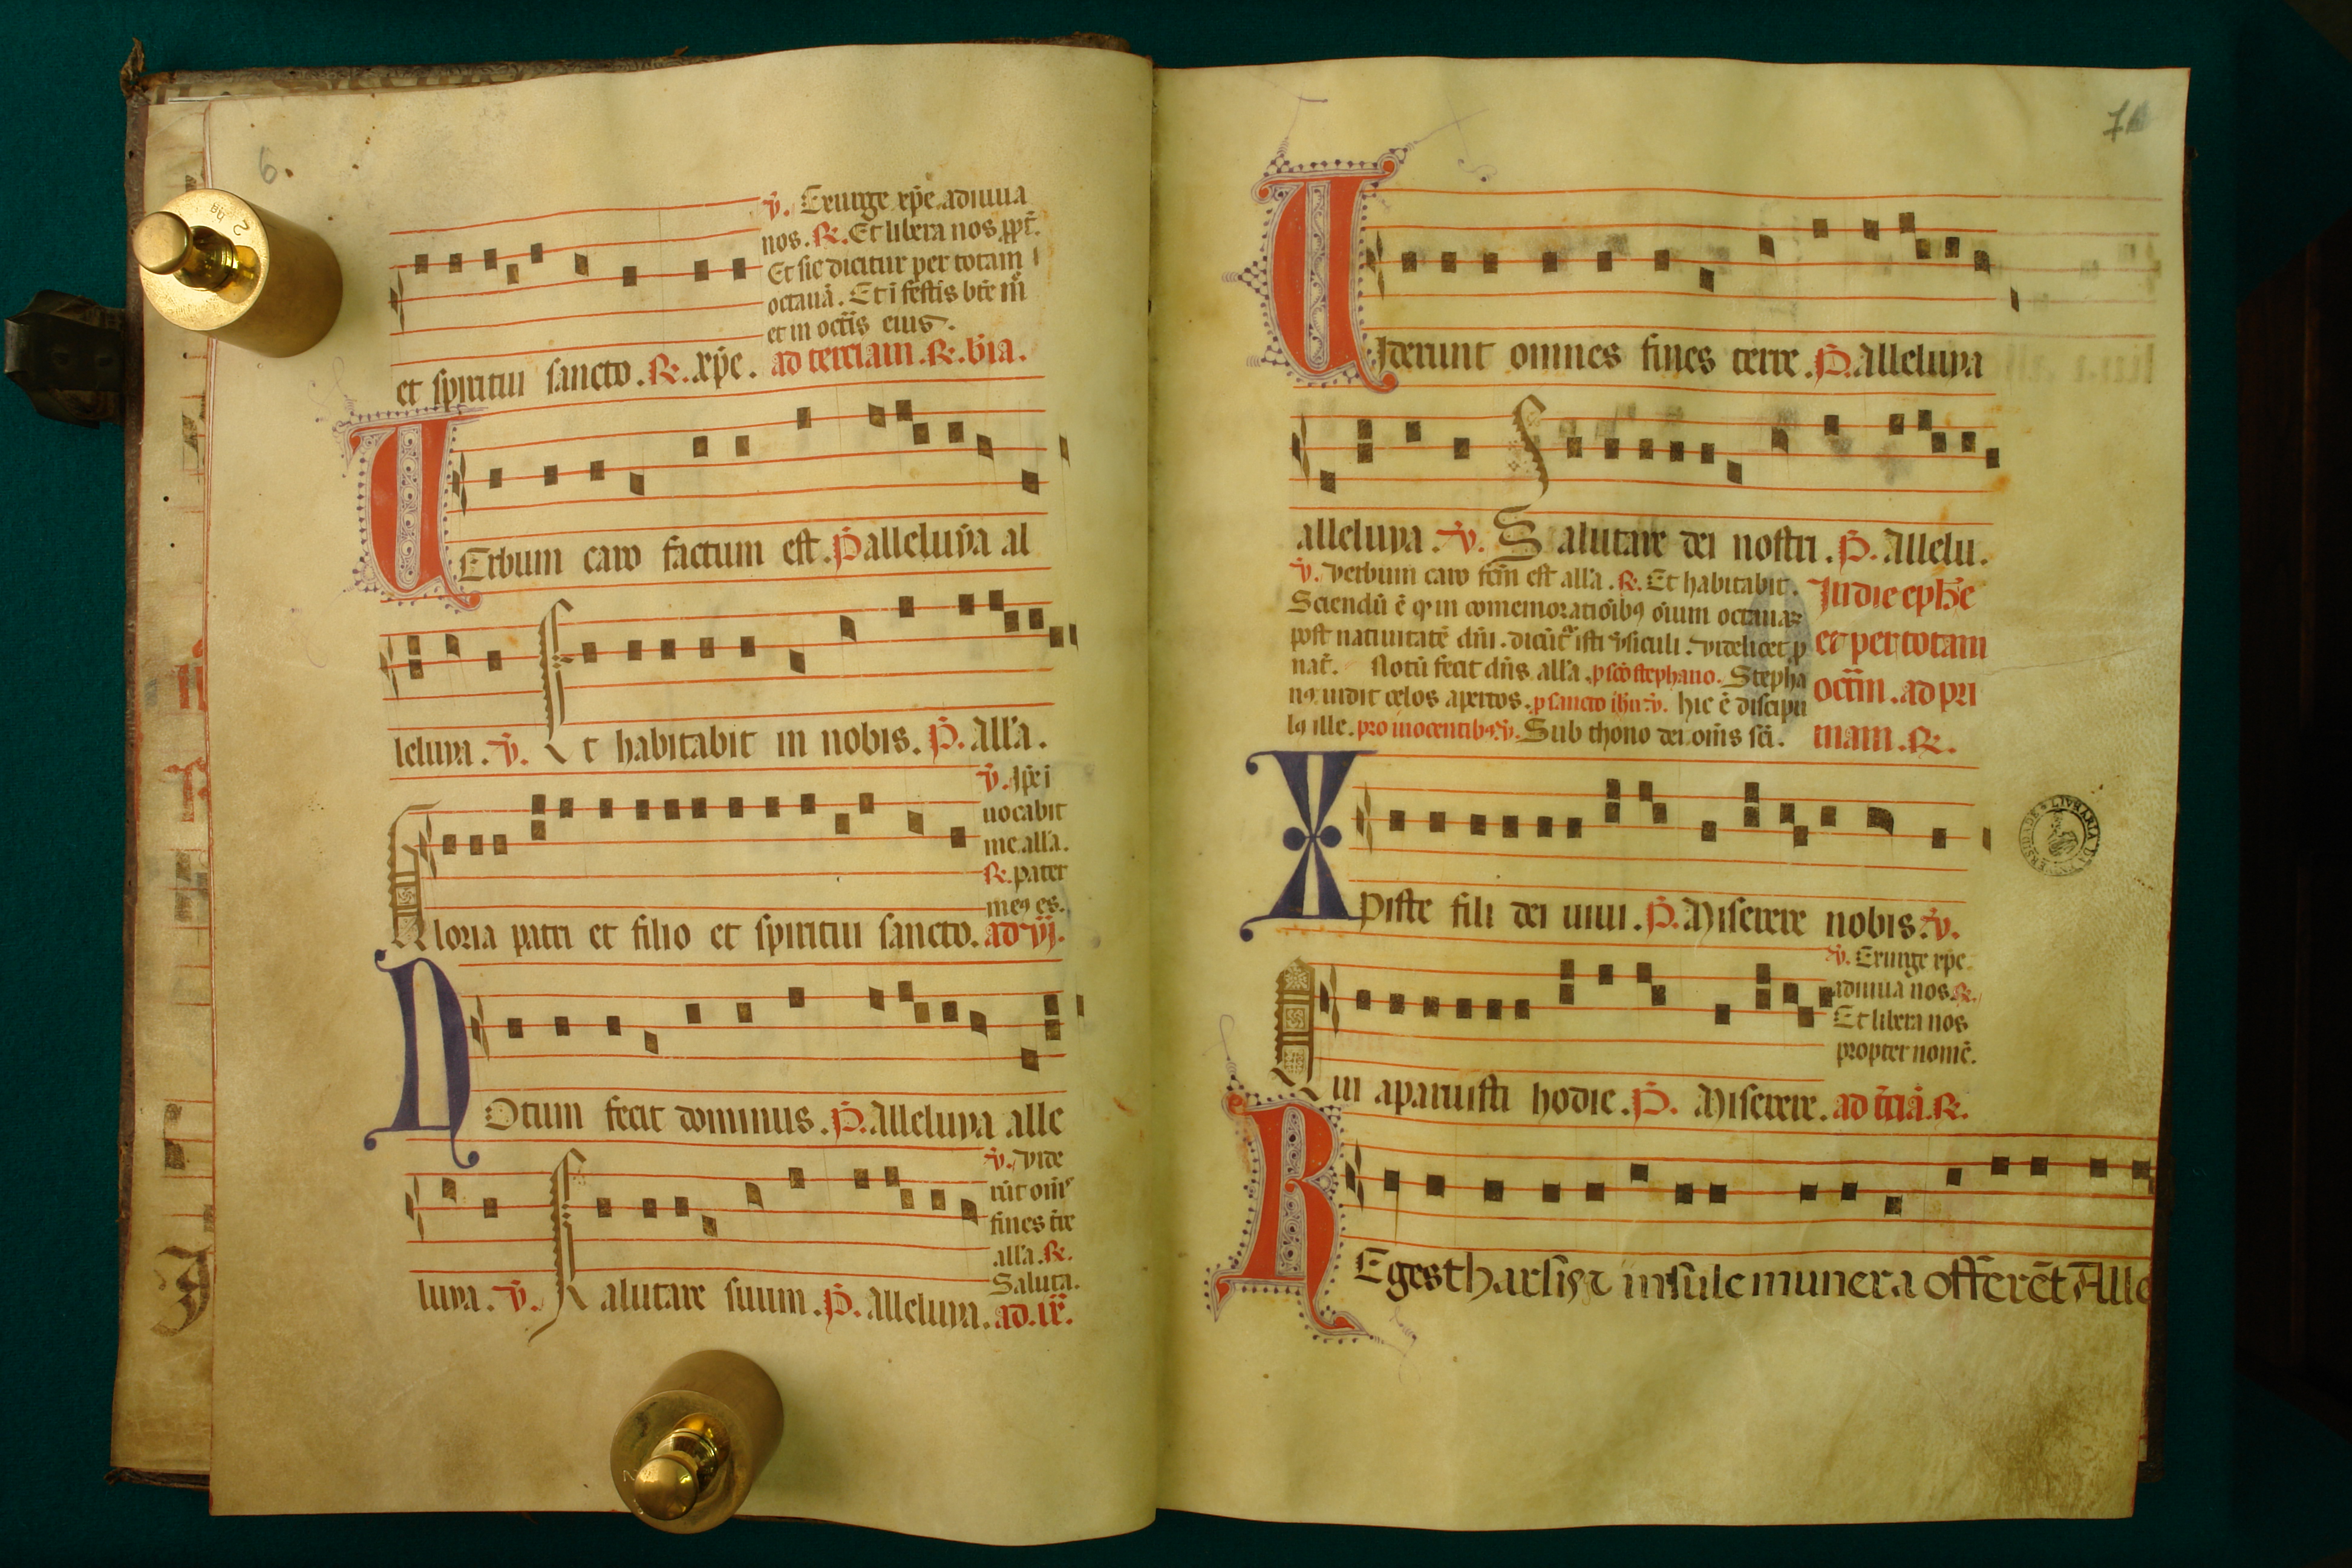 6.
v. Exurge xpe adiuua
nos. R. Et libera nos ppt.
Et sic dicitur per totam
octauā. Et ī festis bte m
et in octis eius.
et spiritui sancto. R. xpe. ad terciam. R. bīa.
UErbum caro factum est. P alleluya al
leluya. v. Et habitabit in nobis. P. All'a.
v. Ipe i
uocabit
me all'a.
R. pater
meꝰ es.
Gloria patri et filio et spiritui sancto. ad vj.
NOtum fecit dominus. P. Alleluya alle
v. vide
rūt om̄s
fines tre
all'a. R.
Saluta.
luya. v. Salutare suum. P. Alleluya. ad. ix.
7
UIderunt omnes fines terre. P. Alleluya
alleluya. v. Salutare dei nostri. P. Allelu.
v. Verbum caro fcm est all'a. R. Et habitabit.
Sciendū ē qꝫ in comemoratiōibꝰ oīum octauaꝝ
post natiuitatē dnī. dicūt' isti v'siculi. videlicet p
nat'. Notū fecit dn̄s all'a. p scō stephano. Stepha
nꝰ uidit celos apertos. p sancto ihn̄e v. hic ē discipu
lꝰ ille. pro inocentibꝰ. v. Sub throno dei om̄s sci.
In die eph'e
et per totam
octām. ad pri
mam. R.
Xpiste fili dei uiui. P. Miserere nobis. v.
v. Exurge xpe
adiuua nos R.
Et libera nos
propter nomē.
Qui aparuisti hodie. P. Miserere. ad t'ciā. R.
REges tharsis ⁊ insule munera offerēt Alle
LIVRARIA DA